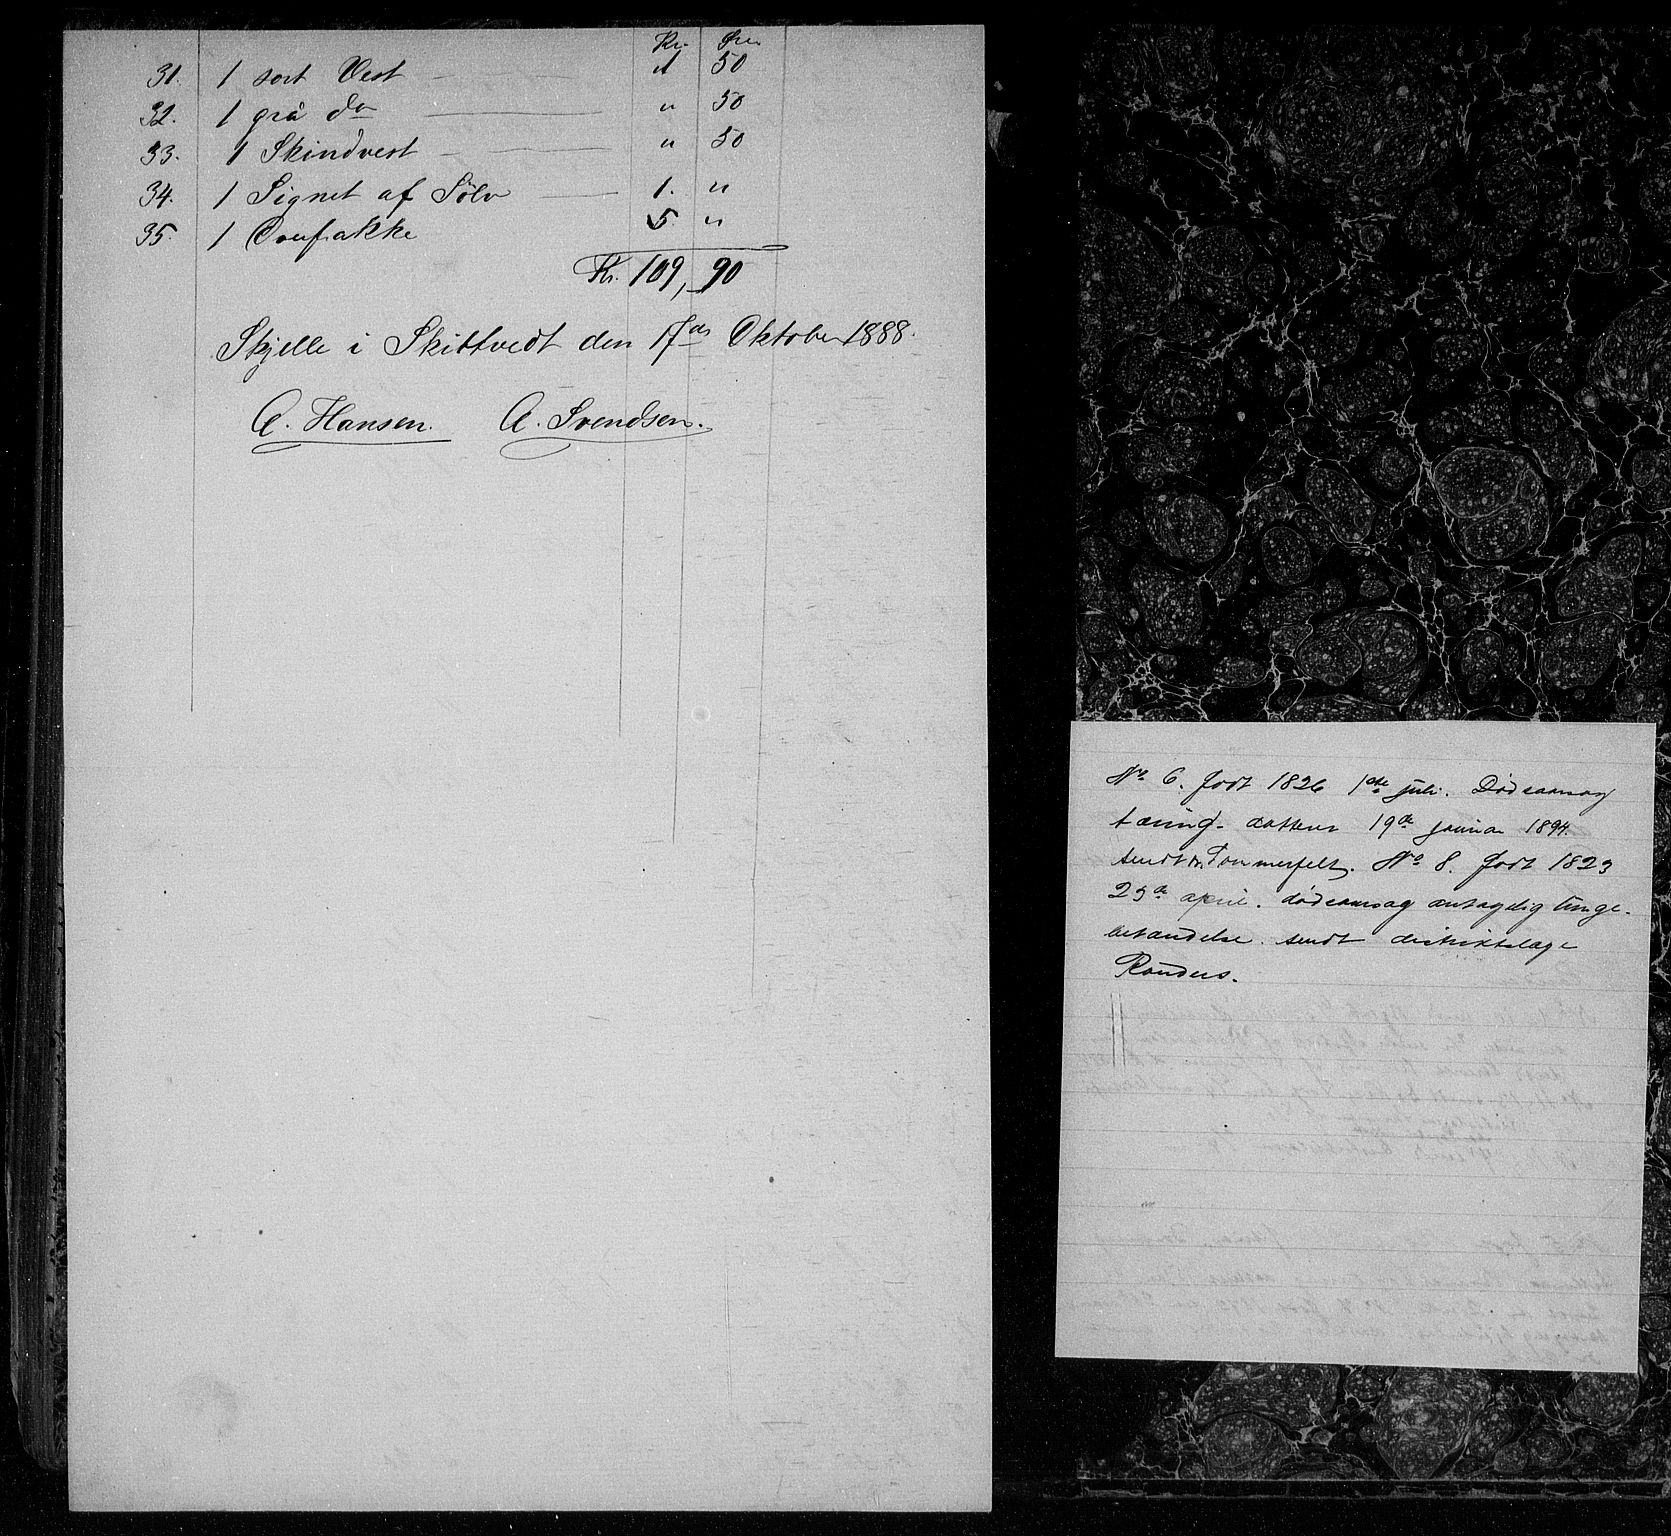 Kr. Øre.
31. 1 sort Vest — 1 50
32. 1 grå do — " 50
33. 1 Skindvest — " 50
34. 1 Signet af Sølv — 1. "
35. 1 Overfrakke 5. "
Kr. 109,90
Skjelle i Skiftvedt den 17de Oktober 1888.
A. Hansen. A. Svendsen.
No 6. født 1826 1ste juli. Dødsaarsag
tæring. 19de januar 1894.
sendt Dr. Tommerfelt. No 8. født 1823
25de april. dødsaarsag antagelig lunge-
betændelse. sendt distriktslæge
Randers.